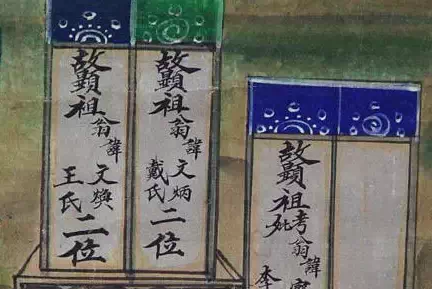 故顯祖考翁諱
妣李
故顯祖翁諱文炳戴氏二位
故顯祖翁諱文煥王氏二位